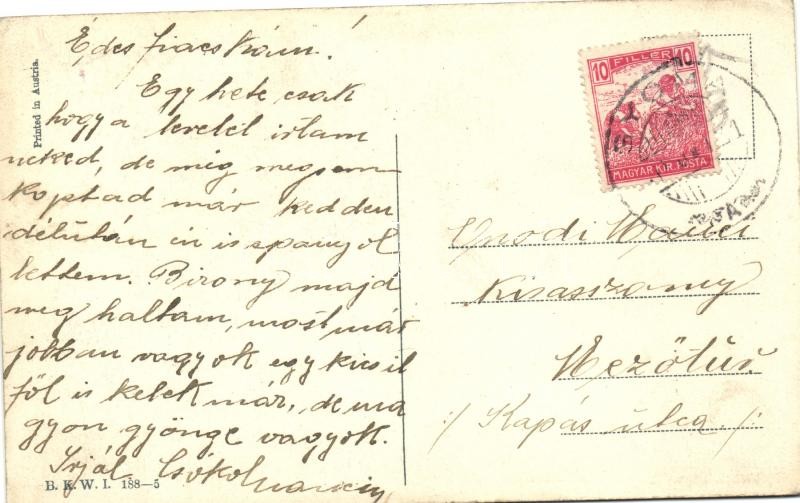 Édes fiacskám!
Egy hete csak
hogy a levelet irtam
neked, de mig megsem
koptad már kedden
délután én is spanyol
lettem. Bizony majd
meg haltam, most már
jobban vagyok egy kicsit
föl is kelek már, de na
gyon gyönge vagyok.
Irjál Csókol
Printed in Austria.
B. K. W. I. 188—5
10 FILLER 10
MAGYAR KIR. POSTA
Manci
Kisasszony
Mezőtúr
:/ Kapás utca /: